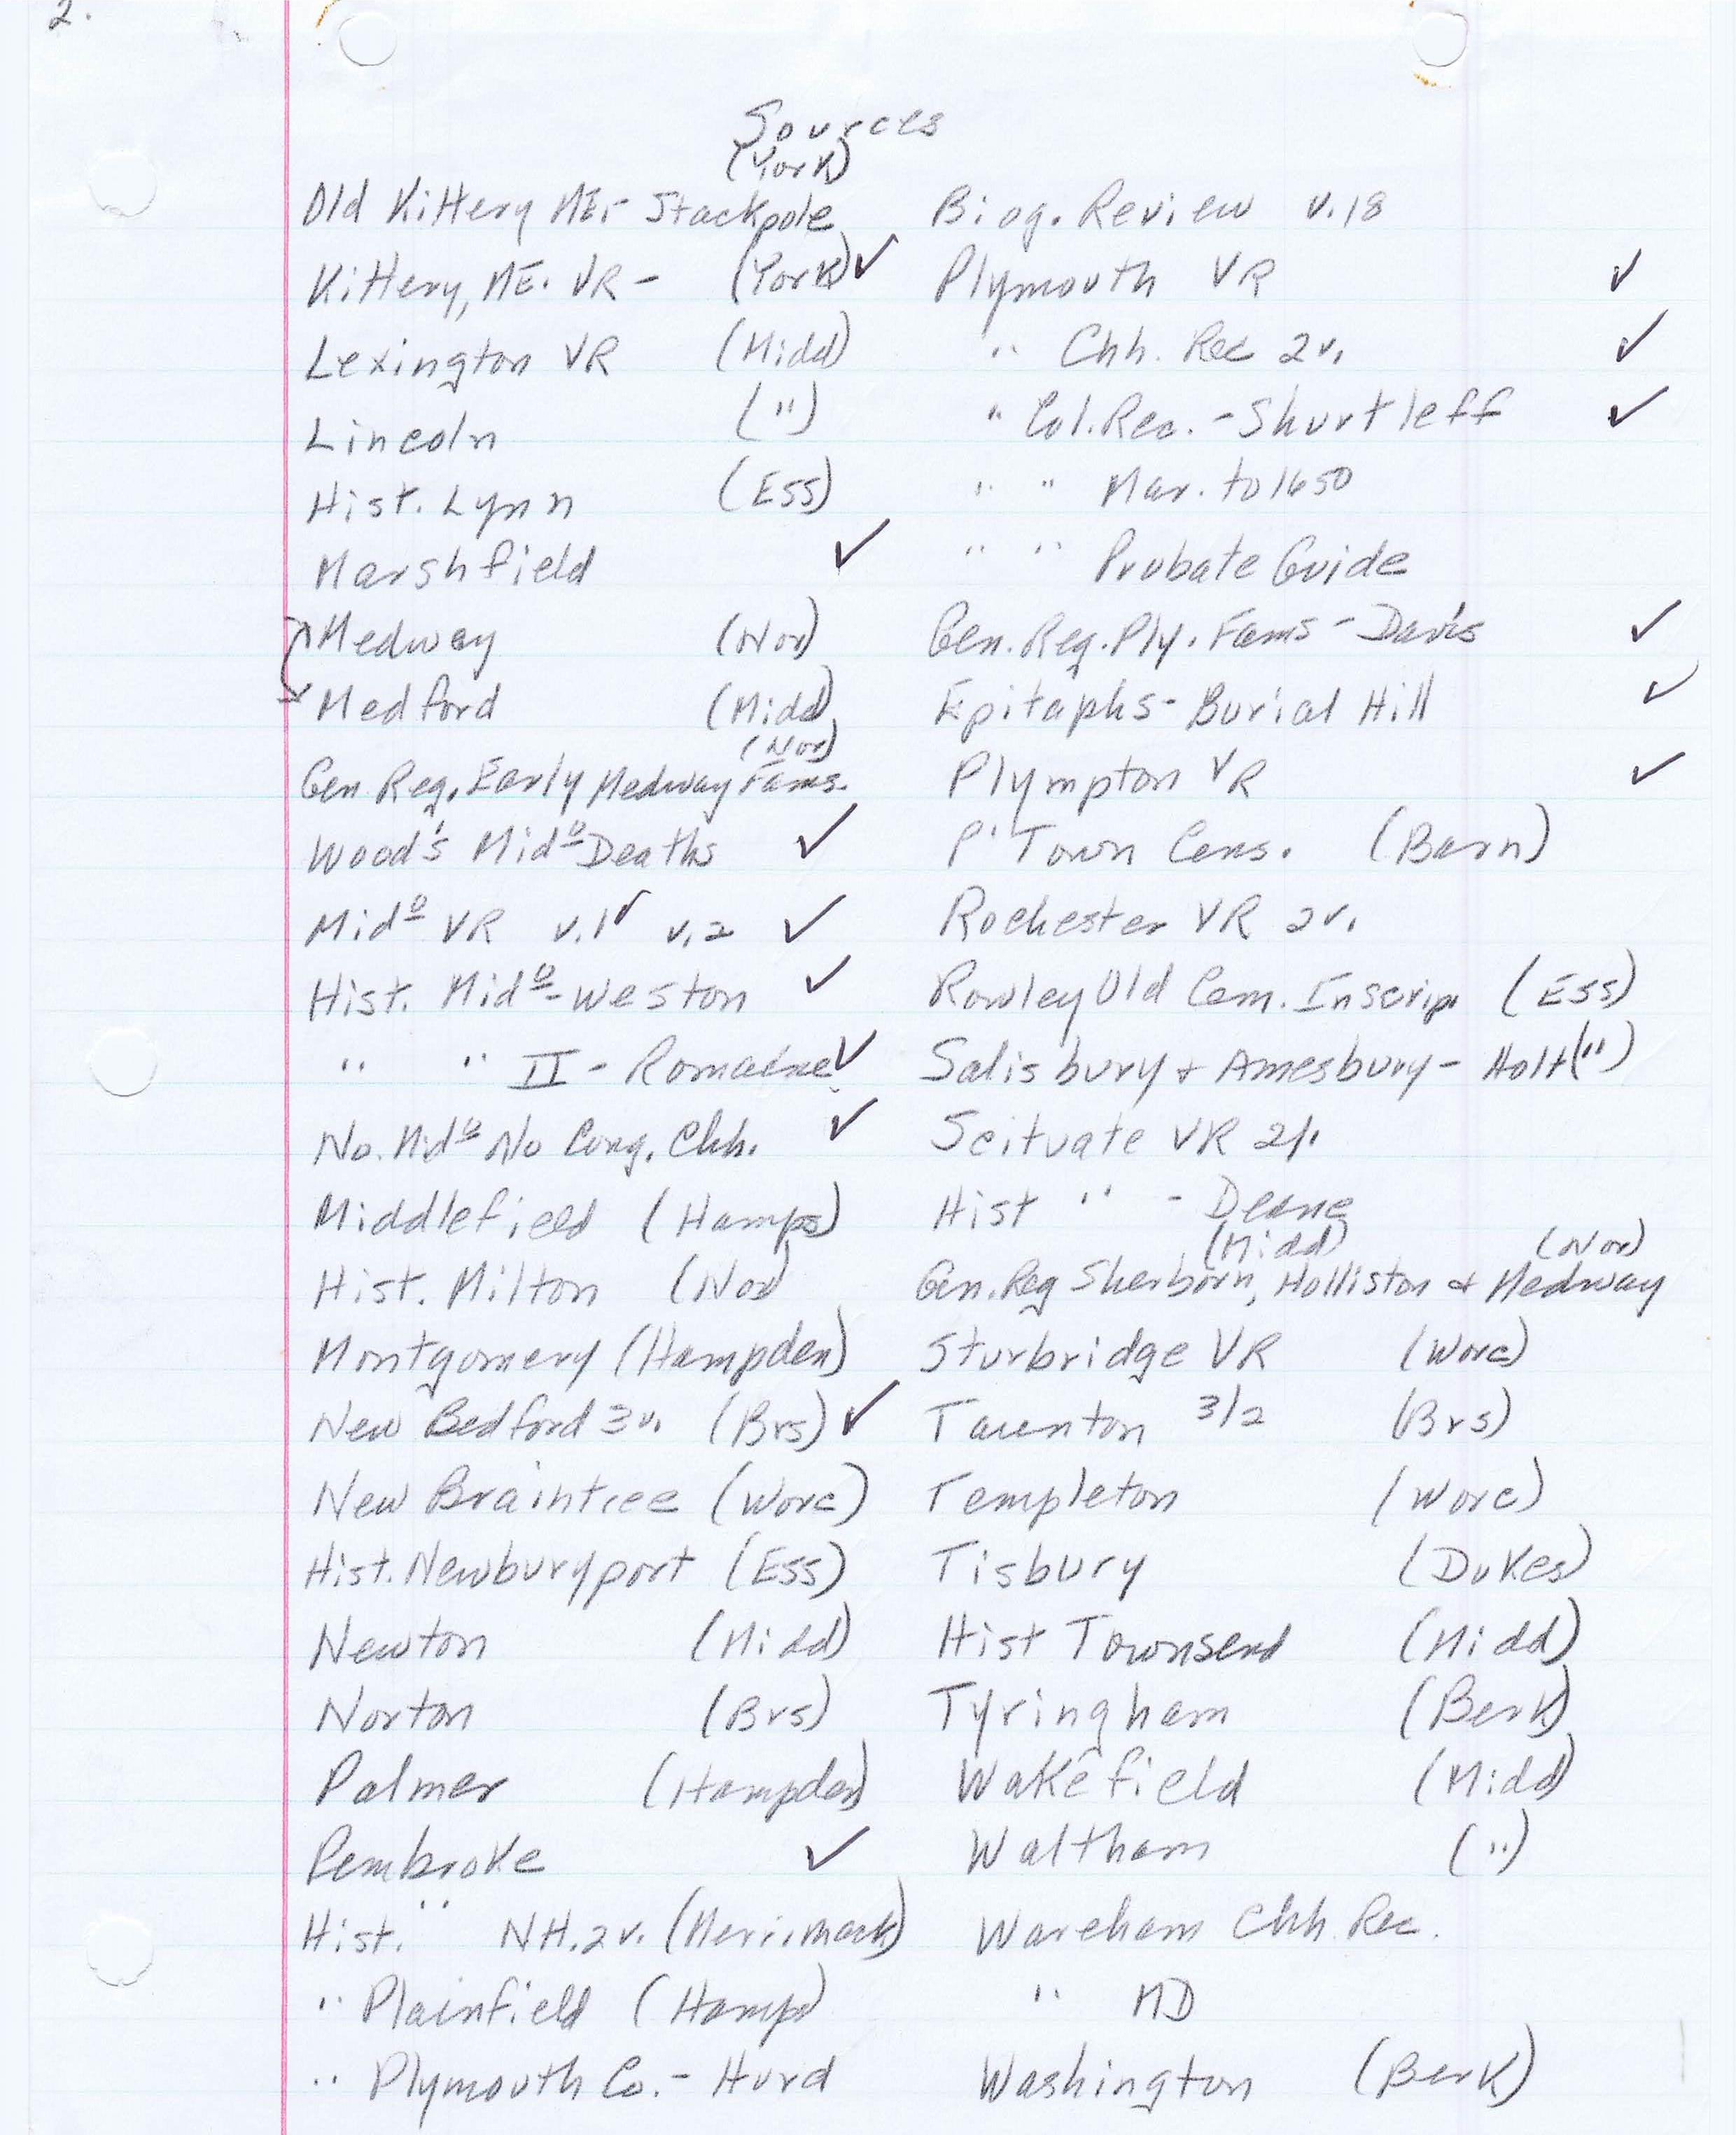 2.
Sources
(York)
Old Kittery ME. - Stackpole
Kittery, ME. VR - (York) ✓
Lexington VR (Midd)
Lincoln (")
Hist. Lynn (Ess)
Marshfield ✓
Medway (Nor)
Medford (Midd)
(Nor)
Gen. Reg. Early Medway Fams.
Wood's Midº Deaths ✓
Midº VR v.1 ✓ v.2 ✓
Hist. Midº - Weston ✓
" " II - Romaine ✓
No. Midº No Cong. Chh. ✓
Middlefield (Hamps)
Hist. Milton (Nor)
Montgomery (Hampden)
New Bedford 3v. (Brs) ✓
New Braintree (Worc)
Hist. Newburyport (Ess)
Newton (Midd)
Norton (Brs)
Palmer (Hampden)
Pembroke ✓
Hist. " NH. 2v. (Merrimack)
" Plainfield (Hamp)
" Plymouth Co. - Hurd
Biog. Review v.18
Plymouth VR ✓
" Chh. Rec 2v. ✓
" Col. Rec. - Shurtleff ✓
" " Mar. to 1650
" " Probate Guide
Gen. Reg. Ply. Fams - Davis ✓
Epitaphs - Burial Hill ✓
Plympton VR ✓
P'Town Cens. (Barn)
Rochester VR 2v.
Rowley Old Cem. Inscrip. (Ess)
Salisbury + Amesbury - Hoyt (")
Scituate VR 2v.
Hist " - Deane
(Midd) (Nor)
Gen. Reg Sherborn, Holliston & Medway
Sturbridge VR (Worc)
Taunton 3/2 (Brs)
Templeton (Worc)
Tisbury (Dukes)
Hist Townsend (Midd)
Tyringham (Berk)
Wakefield (Midd)
Waltham (")
Wareham Chh. Rec.
" MD
Washington (Berk)